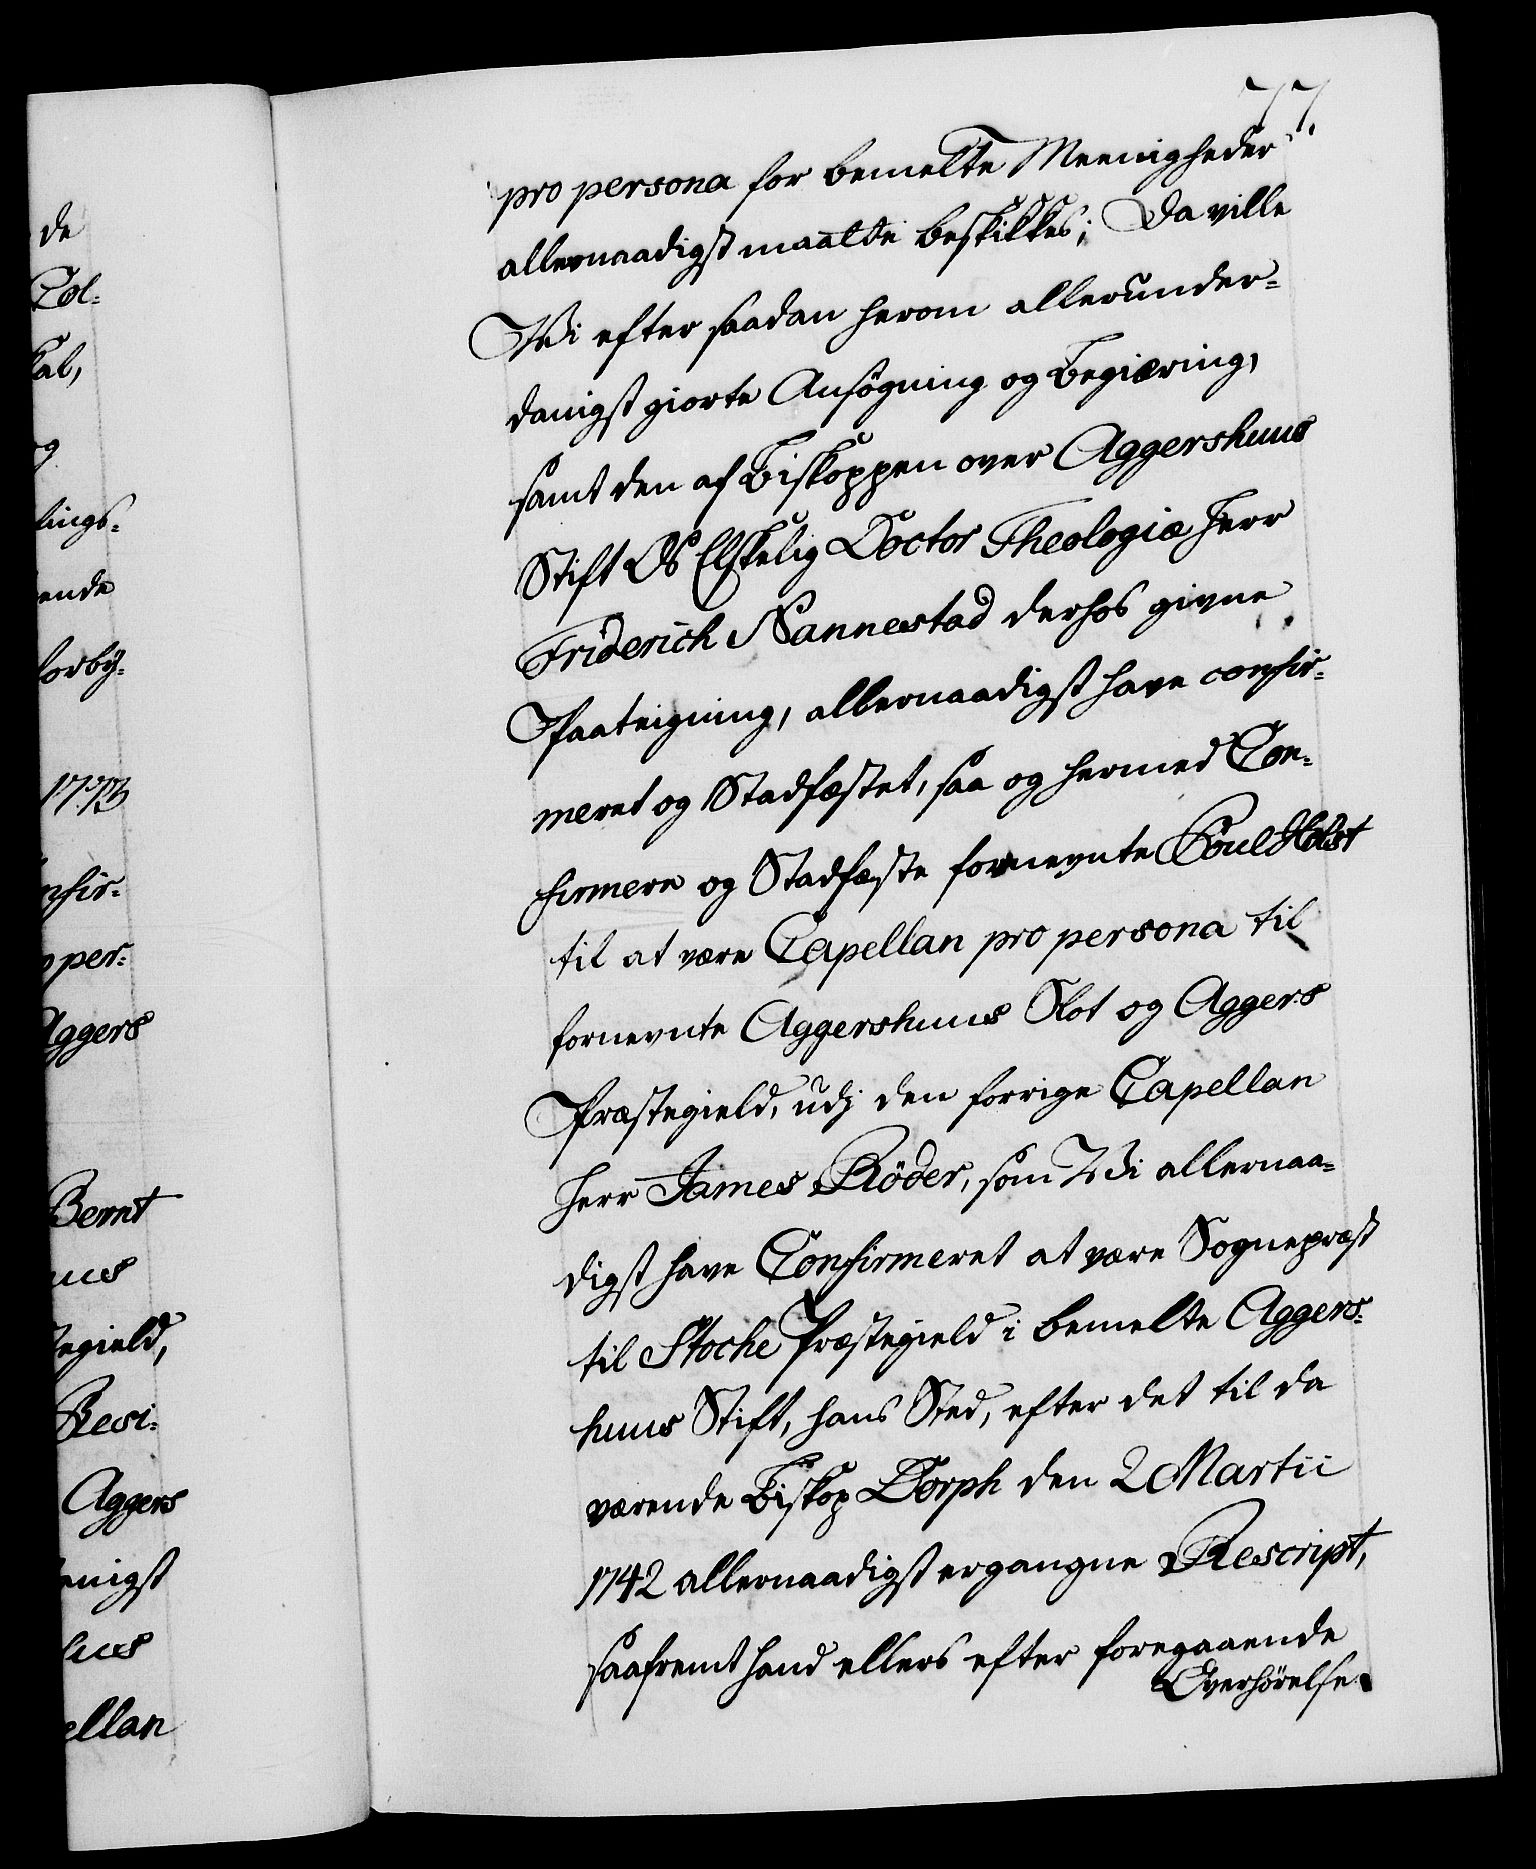 77.
pro persona for bemelte Meenigheder
allernaadigst maatte beskikkes; Da ville
Wi efter saadan herom allerunder-
danigst giorte Ansøgning og Begiæring,
samt den af Biskoppen over Aggershuus
Stift Os Elskelig Doctor Theologiæ Herr
Friderich Nannestad derhos givne
Paateigning, allernaadigst have confir-
meret og Stadfæstet, saa og hermed Con-
firmere og Stadfæste fornevnte Poul Holst
til at være Capellan pro persona til
fornevnte Aggershuus Slot og Aggers
Præstegield, udj den forrige Capellan
Herr James Röder, som Wi allernaa-
digst have Confirmeret at være Sognepræst
til Stoche Præstegield i bemelte Aggers-
huus Stift, hans Sted, efter det til da
værende Biskop Dorph den 2 Martii
1742 allernaadigst ergangne Rescript,
saafremt hand ellers efter foregaaende
Overhörelse
de
Col-
kal,
og
lings-
ende
forby-
nfir-
per-
Aggers
Bernt
uus
egield,
Resi-
Aggers
enigst
huus
ellan